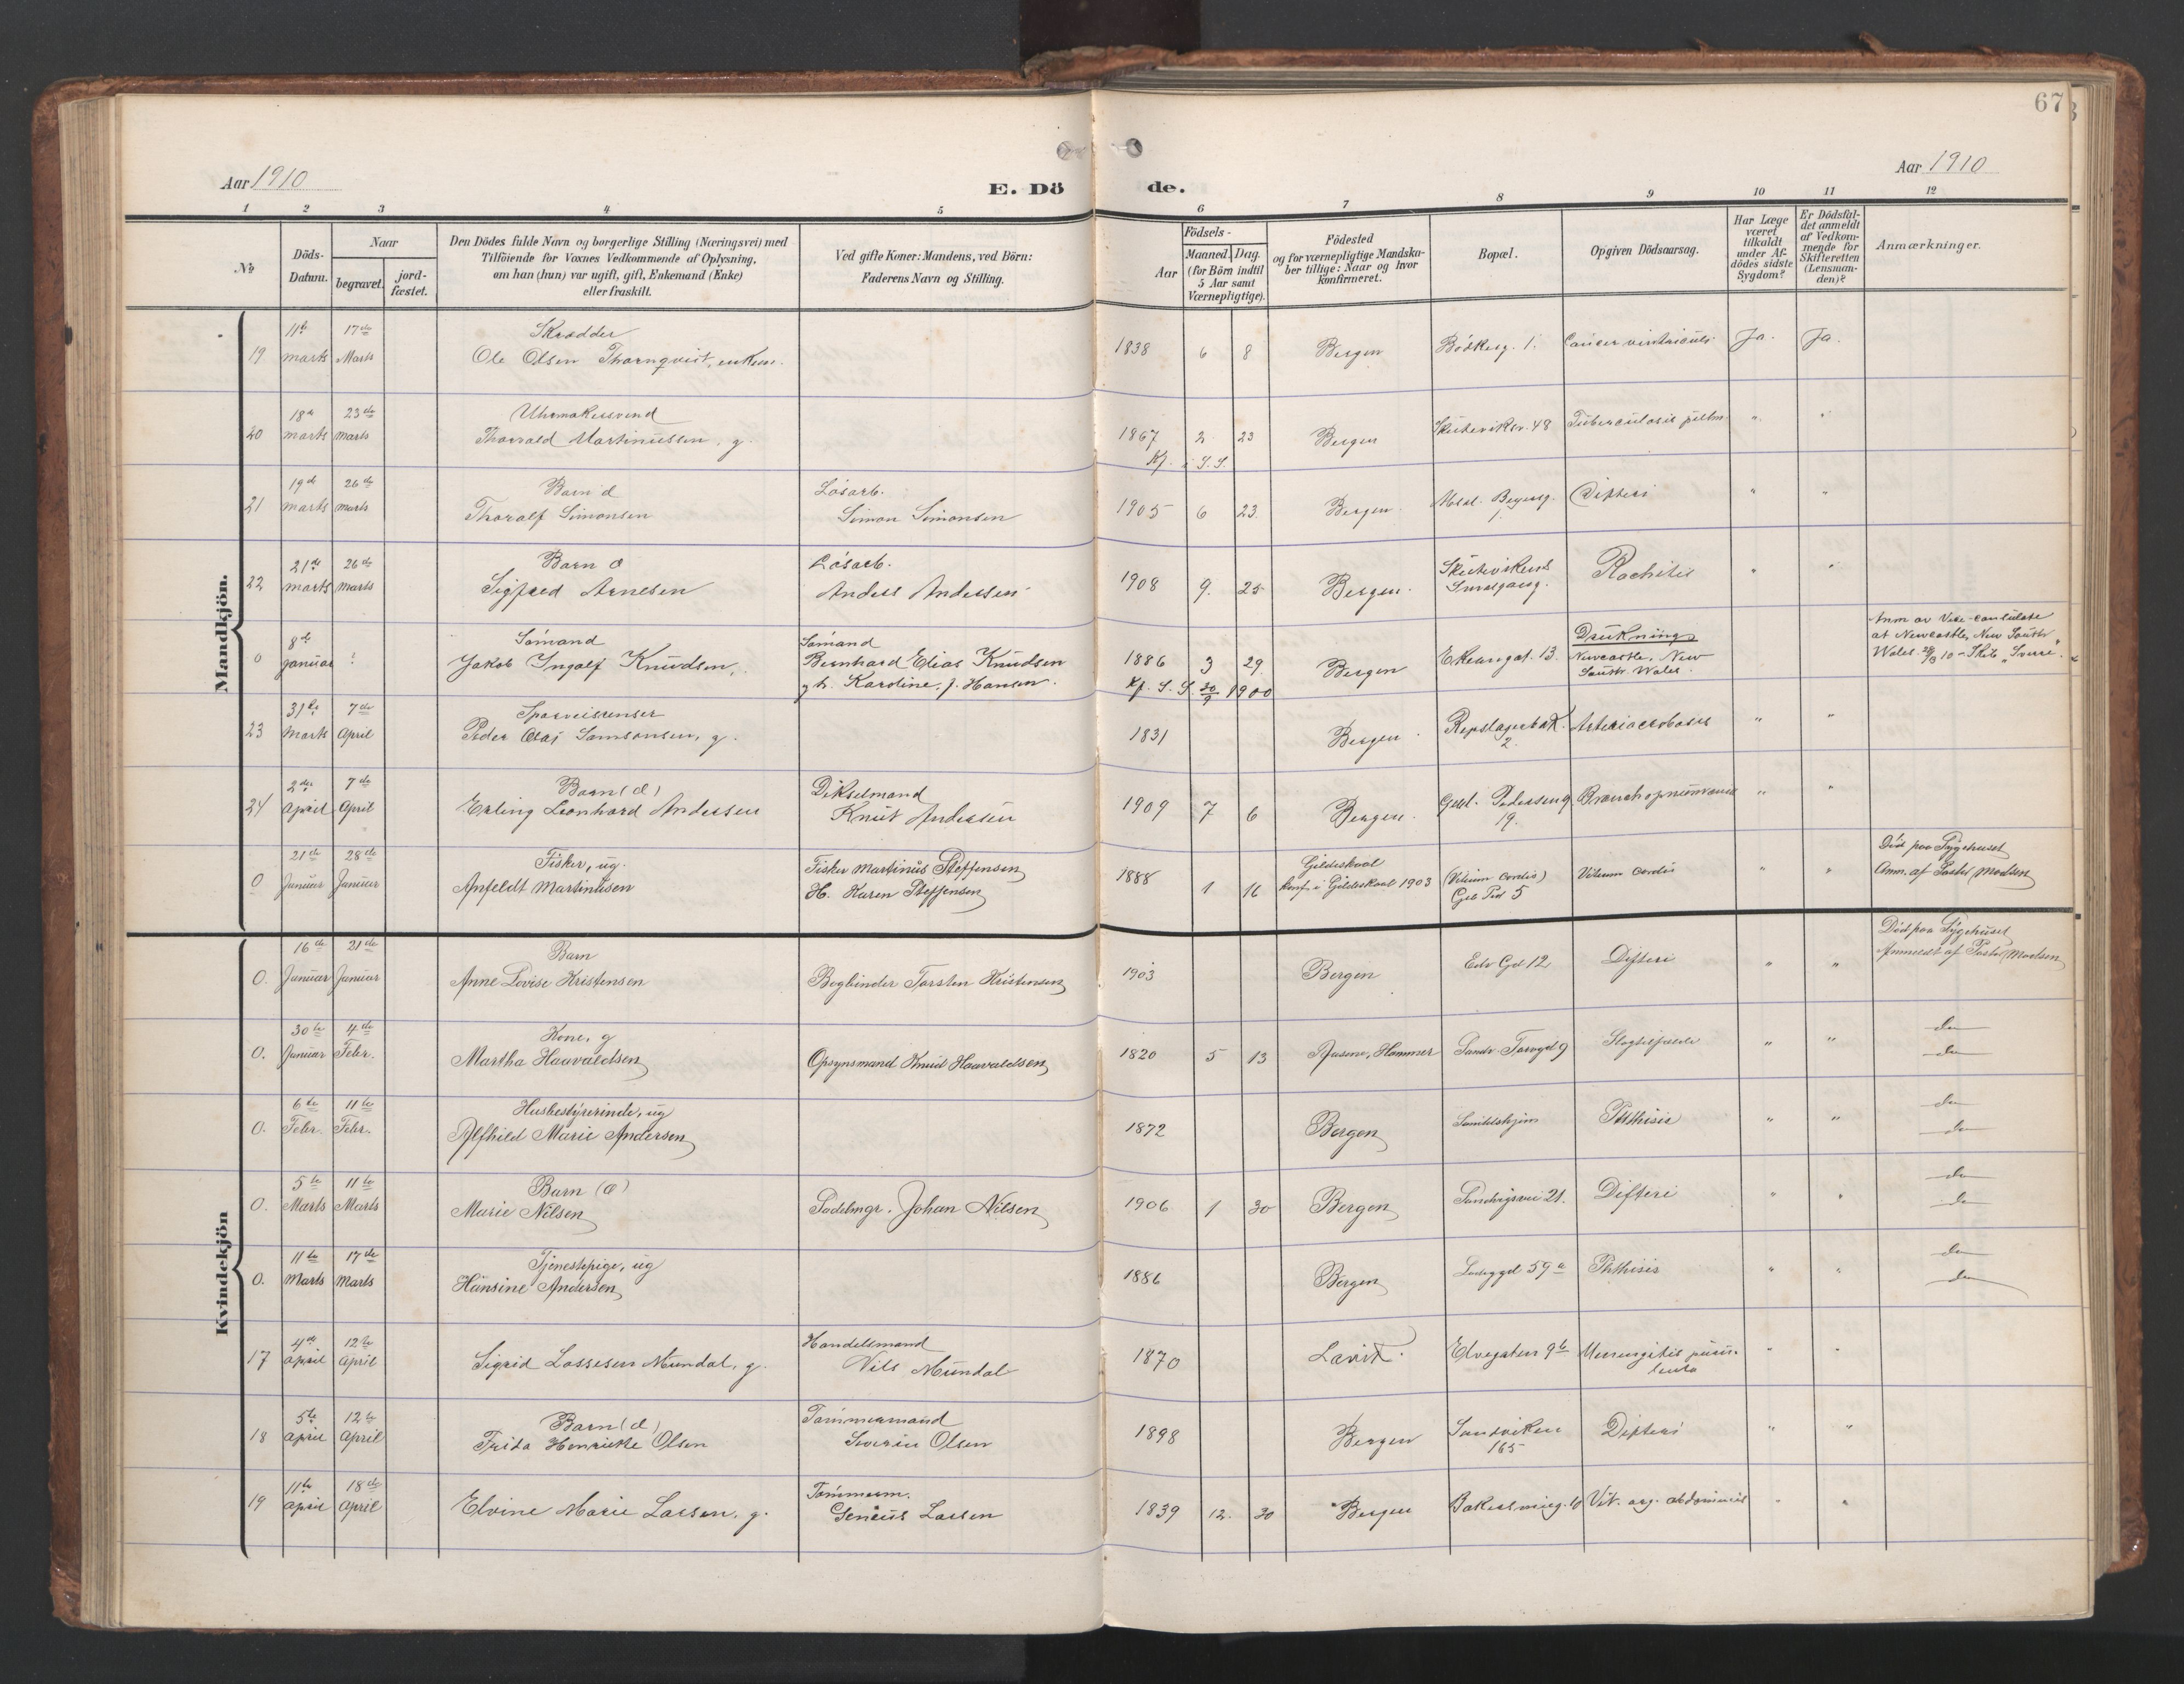 67
Aar 1910
E. Dö de.
Aar 1910
1 2 3 4 5 6 7 8 9 10 11 12
No
Döds-
Datum.
Naar
begravet.
jord-
fæstet.
Den Dödes fulde Navn og borgerlige Stilling (Næringsvei) med
Tilföiende for Voxnes Vedkommende af Oplysning,
om han (hun) var ugift, gift, Enkemand (Enke)
eller fraskilt.
Ved gifte Koner: Mandens, ved Börn:
Faderens Navn og Stilling.
Födsels-
Aar
Maaned. Dag.
(for Börn indtil
5 Aar samt
Værnepligtige).
Födested
og for værnepligtige Mandska-
ber tillige: Naar og hvor
konfirmeret.
Bopæl.
Opgiven Dödsaarsag.
Har Læge
været
tilkaldt
under Af-
dödes sidste
Sygdom?
Er Dödsfal-
det anmeldt
af Vedkom-
mende for
Skifteretten
(Lensman-
den)?
Anmærkninger.
Mandkjön.
11te 17de Skrædder
19 marts Marts Ole Olsen Thornqvist, enkem. 1838 6 8 Bergen Bödkerg. 1. Cancer ventriculi. Ja. Ja.
18de 23de Uhrmakersvend
20 marts marts Thorvald Martinussen, g. 1867 2 23 Bergen Skuteviksv. 48 Tuberculosis pulm. " "
Kf. i S. S.
19de 26de Barn d Lösarb.
21 marts marts Thoralf Simonsen Simon Simonsen 1905 6 23. Bergen. Absal. Beyersg. 1. Difteri " "
21de 26de Barn Lösarb.
22 marts marts Sigfred Arnesen Anders Andersen 1908 9. 25 Bergen. Skutevikens Smalgang. Rachitis " "
8de Sömand Sömand Drukning
0 januar ? Jakob Ingolf Knudsen, Bernhard Elias Knudsen 1886 3 29. Bergen Ekrengat. 13. Newcastle, New South Wales.
gh. Karoline, f. Hansen. Kf. S. S. 30/9 1900
Anm av Vice-consulate
at Newcastle, New South
Wales. 28/3 10 - Skib "Sverre".
31te 7de Sporveisrenser
23 Marts April Peder Olai Samsonsen, g. 1831 Bergen. Repslagerbak. 2. " "
2den 7de Barn (d) Dikselmand
24 April April Erling Leonhard Andersen Knut Andersen 1909 7 6 Bergen. Geld. Pedersens g. 19. " "
21de 28de Fisker, ug. Fisker Martinus Steffensen
0 Januar Januar Anfeldt Martinusen H. Karen Steffensen 1888 1 16 Gildeskaal
konf. i Gildeskaal 1903 (Vitium Cordis) Geb Ped 5 Vitium Cordis " "
Död paa Sygehuset
Anm. af Pastor Madsen
Kvindekjön
16de 21de Barn
0. Januar Januar Anne Lovise Kristensen Bogbinder Torsten Kristensen 1903 Bergen Edv Gd 12 Difteri " "
Död paa Sygehuset
Anmeldt af Pastor Madsen
30te 4de Kone, g
0. Januar Febr. Martha Haavaldsen Opsynsmand Knud Haavaldsen 1820 5 13 Hammer Sandv Torvgd 9 Slagtilfælde " " do
do
6te 11te Husbestyrerinde, ug
0. Febr. Febr. Alfhild Marie Andersen 1872 Bergen Phthisis " " do
do
5te 11te Barn
0. Marts Marts Marie Nilsen Sadelmgr. Johan Nilsen 1906 1 30 Bergen Sandvigsvei 21. Difteri " " do
do
11te 17de Tjenestepige, ug
0. Marts Marts Hansine Andersen 1886 Bergen Ladeggd 59a Phthisis " " do
do
4de 12te Handelsmand
17 april April Sigrid Lassesen Mundal, g. Nils Mundal 1870 Lavik. Elvegaten 9b Meningitis purulenta " "
5te 12te Barn (d) Tömmermand
18 april April Frida Henrikke Olsen Severin Olsen 1898 Bergen Sandviken 165 Difteri " "
11te 18de Tömmerm.
19 april April Elvine Marie Larsen, g. Larsen 1839 12. 30 Bergen Vit. org. abdominis " "